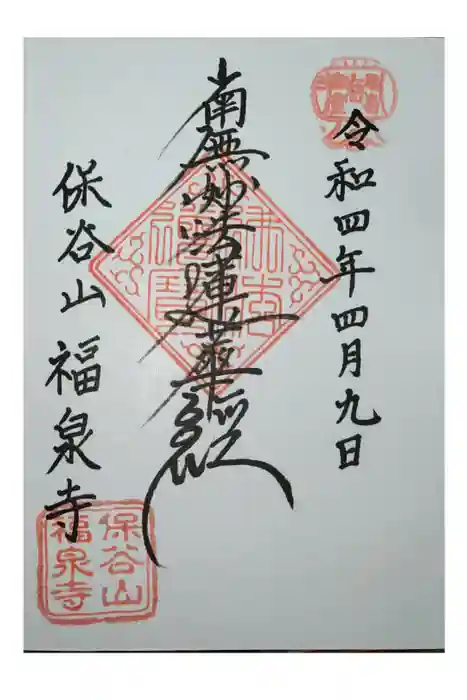 令和四年四月九日
南無妙法蓮華経
保谷山 福泉寺
保谷山
福泉寺